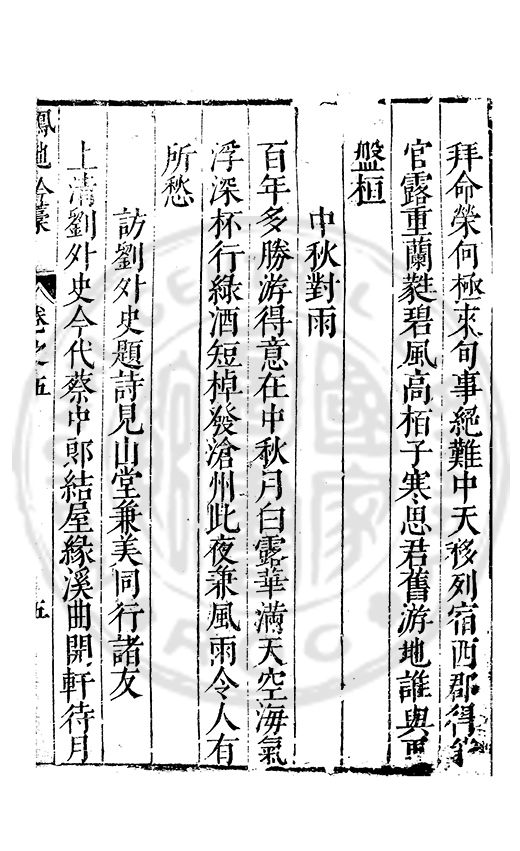 拜命榮何極來旬事絕難中天移列宿西郡得
官露重蘭蕤碧風高栢子寒思君舊游地誰與重
盤桓
中秋對雨
百年多勝游得意在中秋月白露華滿天空海氣
浮深杯行綠酒短棹發滄州此夜兼風雨令人有
所愁
訪劉外史題詩見山堂兼美同行諸友
上清劉外史今代蔡中郎結屋緣溪曲開軒待月
鳳池吟藁 卷之五 五